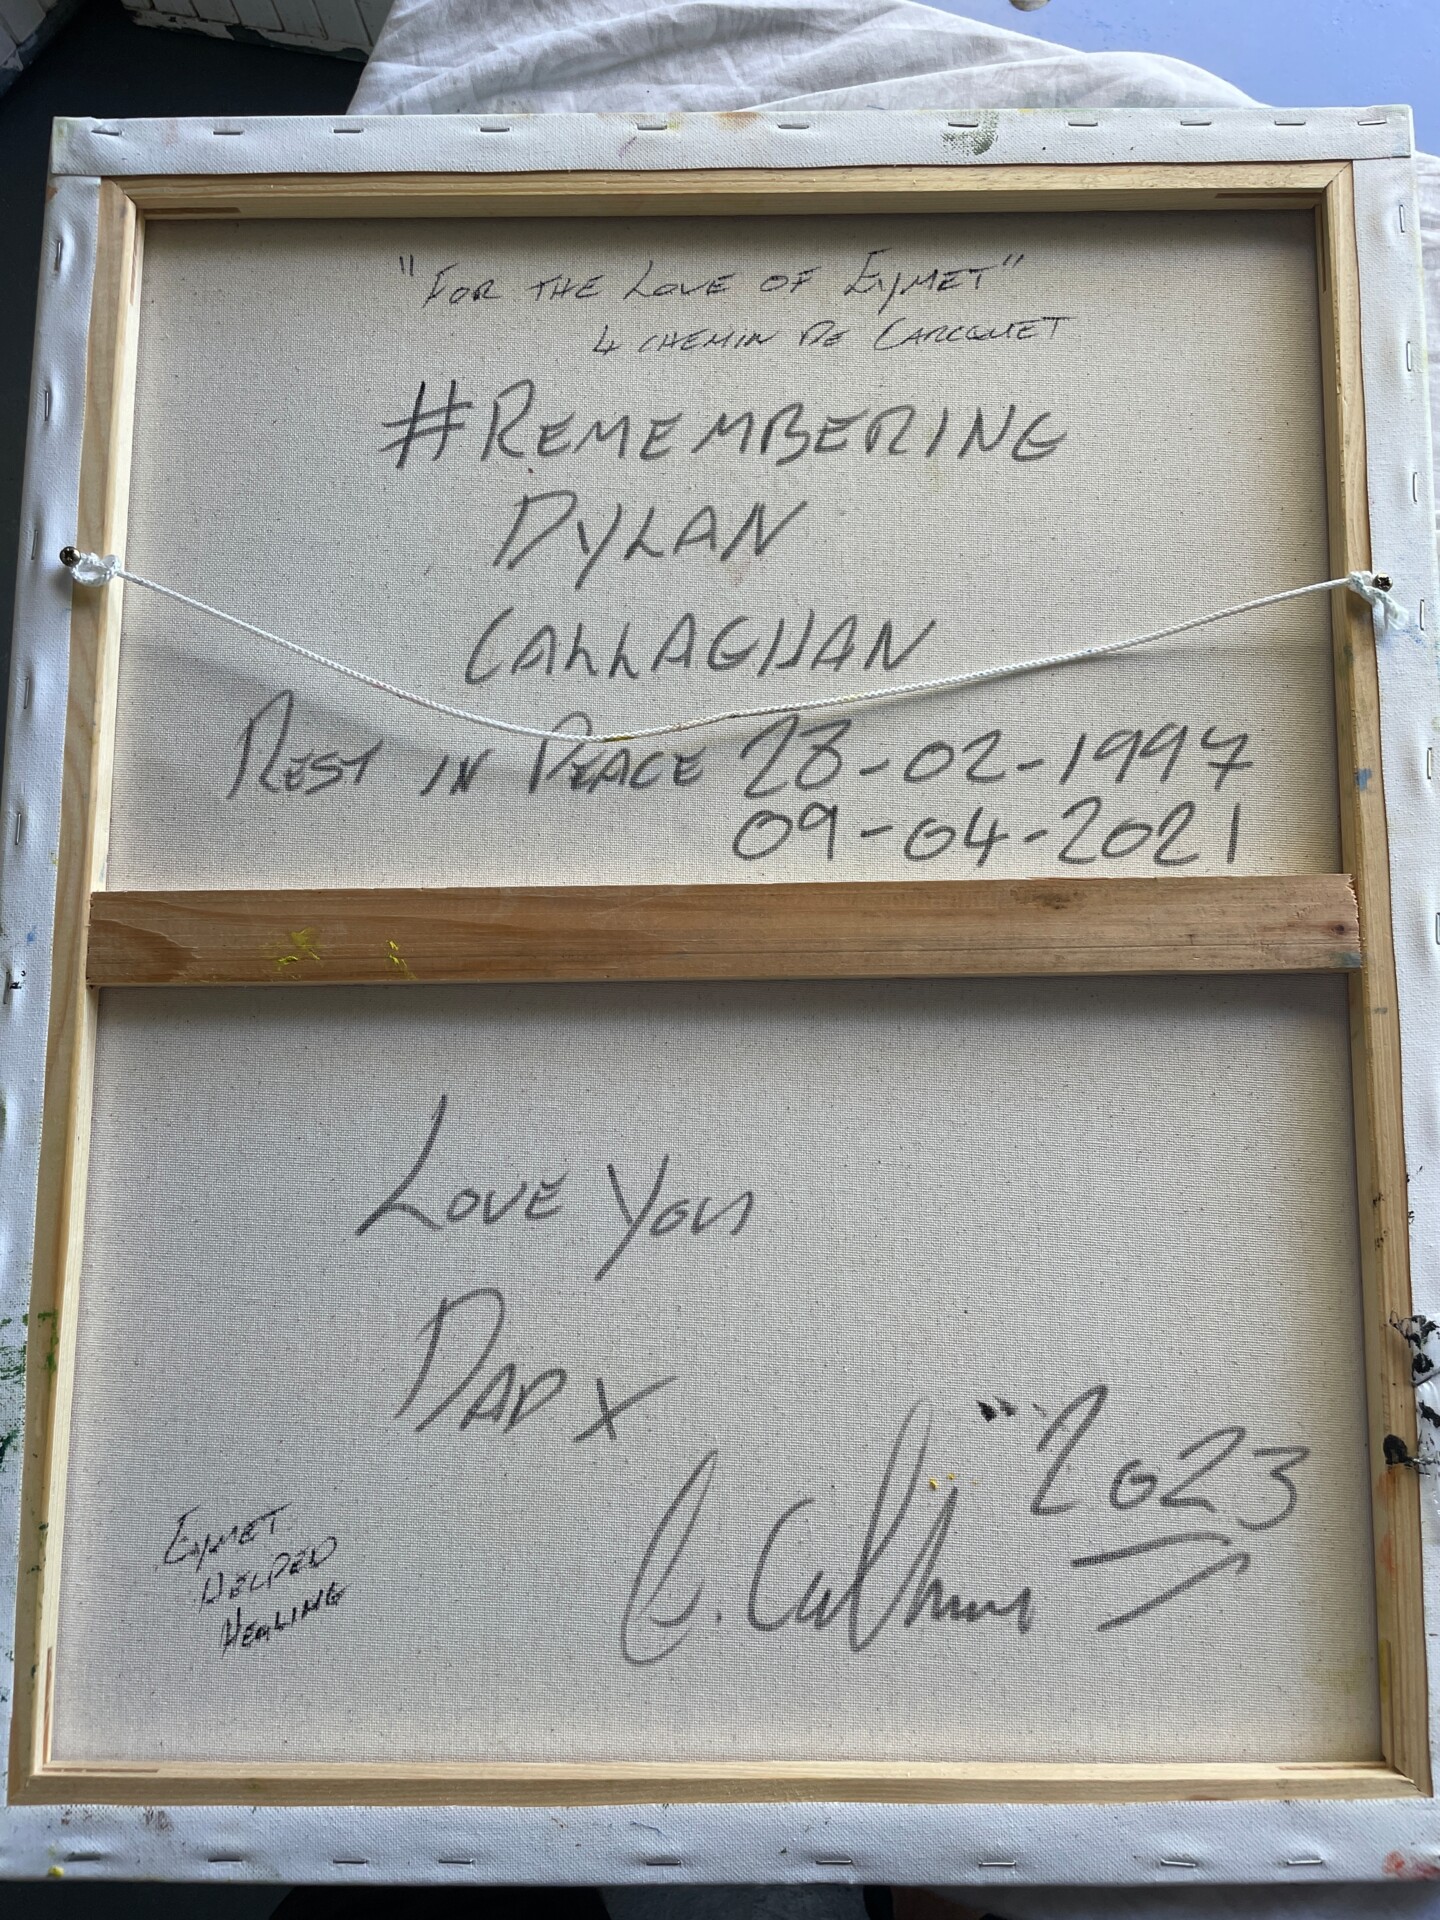 "FOR THE LOVE OF EYMET"
4 CHEMIN DE CARCQUET
#REMEMBERING
DYLAN
CALLAGHAN
REST IN PEACE 28-02-1997
09-04-2021
LOVE YOU
DAD X
"2023
EYMET
HELPED
HEALING